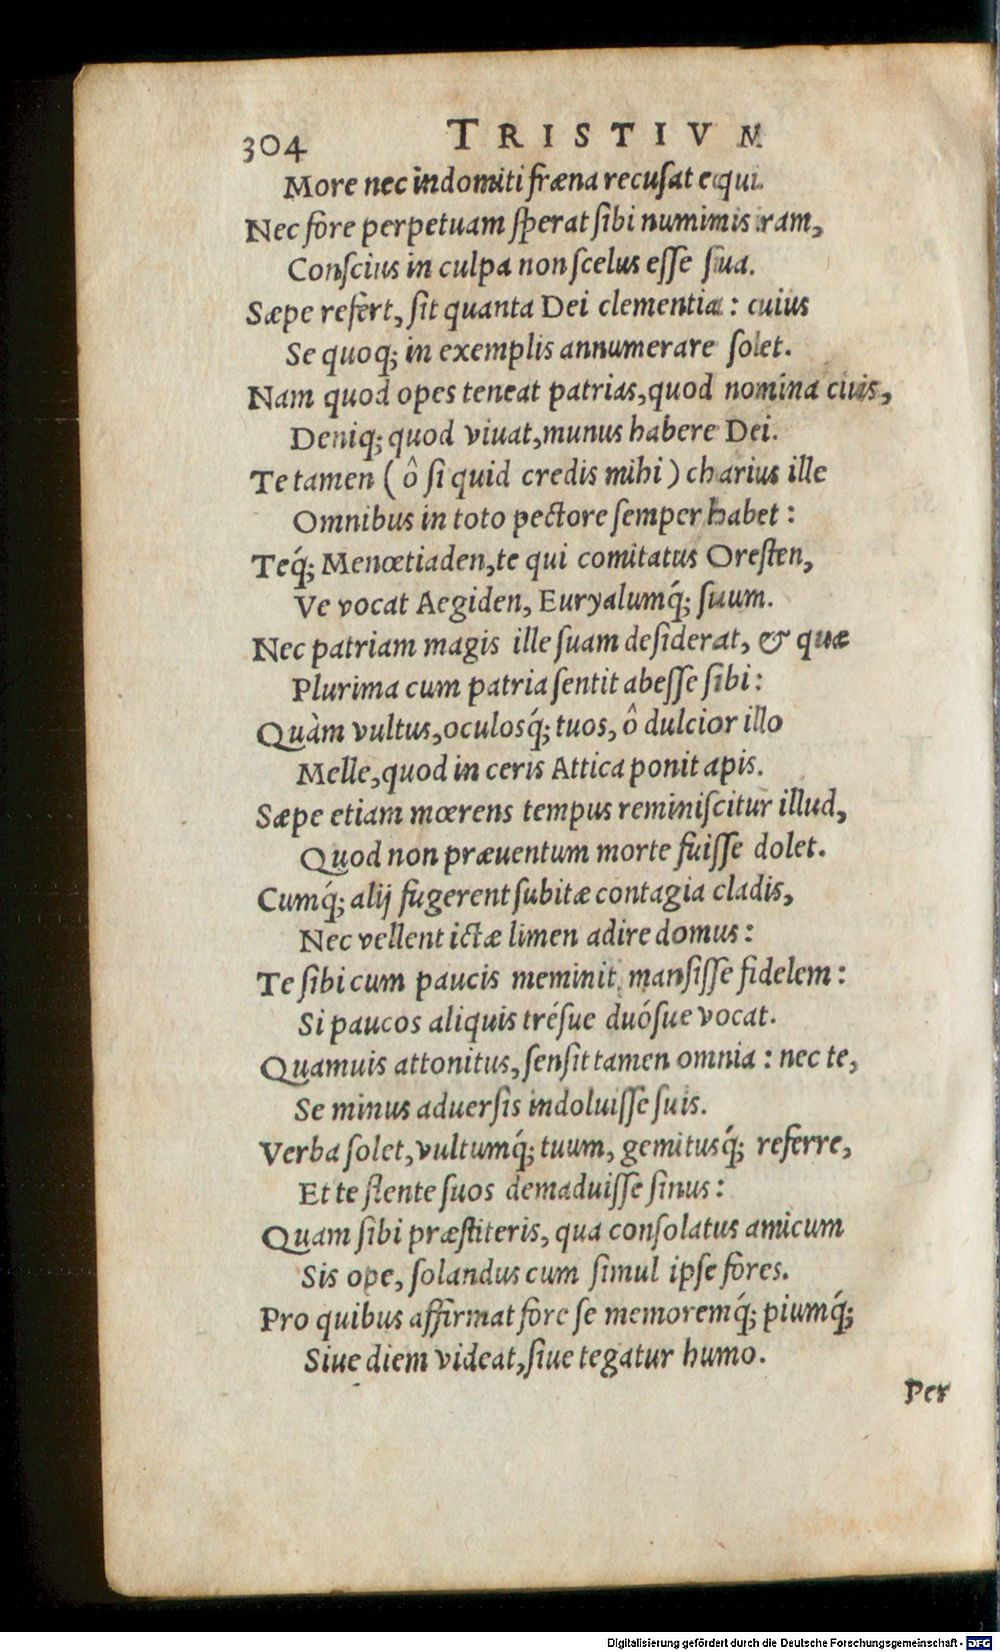 304 TRISTIVM
More nec indomiti fræna recusat equi.
Nec fore perpetuam sperat sibi numimis iram,
Conscius in culpa non scelus esse sua.
Sæpe refert, sit quanta Dei clementia: cuius
Se quoq; in exemplis annumerare solet.
Nam quod opes teneat patrias, quod nomina ciuis,
Deniq; quod viuat, munus habere Dei.
Te tamen (ô si quid credis mihi) charius ille
Omnibus in toto pectore semper habet:
Teq́; Menœtiaden, te qui comitatus Oresten,
Ve vocat Aegiden, Euryalumq́; suum.
Nec patriam magis ille suam desiderat, & quæ
Plurima cum patria sentit abesse sibi:
Quàm vultus, oculosq́; tuos, ô dulcior illo
Melle, quod in ceris Attica ponit apis.
Sæpe etiam mœrens tempus reminiscitur illud,
Quod non præuentum morte fuisse dolet.
Cumq́; alij fugerent subitæ contagia cladis,
Nec vellent ictæ limen adire domus:
Te sibi cum paucis meminit mansisse fidelem:
Si paucos aliquis trésue duósue vocat.
Quamuis attonitus, sensit tamen omnia: nec te,
Se minus aduersis indoluisse suis.
Verba solet, vultumq́; tuum, gemitusq́; referre,
Et te flente suos demaduisse sinus:
Quam sibi præstiteris, qua consolatus amicum
Sis ope, solandus cum simul ipse fores.
Pro quibus affirmat fore se memoremq́; piumq́;
Siue diem videat, siue tegatur humo.
Per
Digitalisierung gefördert durch die Deutsche Forschungsgemeinschaft - DFG